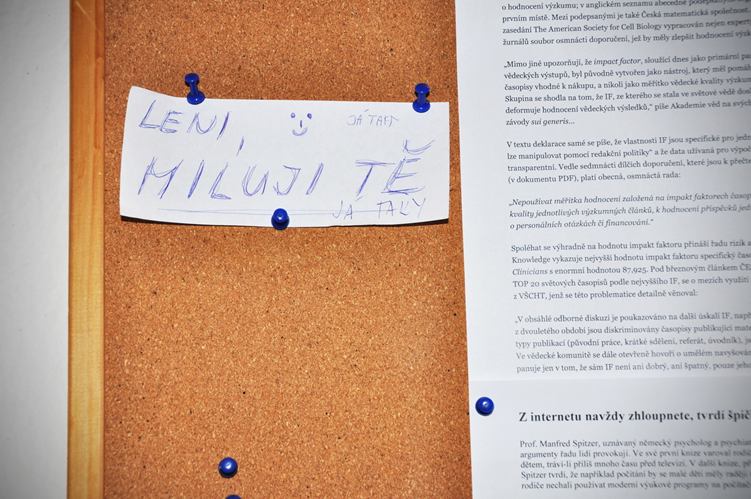 LENI,
JÁ TAKY
MILUJI TĚ
JÁ TAKY
o hodnocení výzkumu; v anglickém seznamu abecedně podepsaných
prvním místě. Mezi podepsanými je také Česká matematická společnost,
zasedání The American Society for Cell Biology vypracován nejen expert
žurnálů soubor osmnácti doporučení, jež by měly zlepšit hodnocení výzk
„Mimo jiné upozorňují, že impact factor, sloužící dnes jako primární pa
vědeckých výstupů, byl původně vytvořen jako nástroj, který měl pomáh
časopisy vhodné k nákupu, a nikoli jako měřítko vědecké kvality výzkum
Skupina se shodla na tom, že IF, ze kterého se stala ve světové vědě dos
deformuje hodnocení vědeckých výsledků,“ píše Akademie věd na svých
závody sui generis...
V textu deklarace samé se píše, že vlastnosti IF jsou specifické pro jedn
lze manipulovat pomocí redakční politiky“ a že data užívaná pro výpoč
transparentní. Vedle sedmnácti dílčích doporučení, které jsou k přečte
(v dokumentu PDF), platí obecná, osmnáctá rada:
„Nepoužívat měřítka hodnocení založená na impakt faktorech časop
kvality jednotlivých výzkumných článků, k hodnocení příspěvků jed
o personálních otázkách či financování.“
Spoléhat se výhradně na hodnotu impakt faktoru přináší řadu rizik a
Knowledge vykazuje nejvyšší hodnotu impakt faktoru specifický časo
Clinicians s enormní hodnotou 87,925. Pod březnovým článkem ČE
TOP 20 světových časopisů podle nejvyššího IF, se o mezích využití
z VŠCHT, jenž se této problematice detailně věnoval:
„V obsáhlé odborné diskuzi je poukazováno na další úskalí IF, např
z dvouletého období jsou diskriminovány časopisy publikující mate
typy publikací (původní práce, krátké sdělení, referát, úvodník), je
Ve vědecké komunitě se dále otevřeně hovoří o umělém navyšován
panuje jen v tom, že sám IF není ani dobrý, ani špatný, pouze jeho
Z internetu navždy zhloupnete, tvrdí špič
Prof. Manfred Spitzer, uznávaný německý psycholog a psychiat
argumenty řadu lidí provokují. Ve své první knize varoval rodič
dětem, tráví-li příliš mnoho času před televizí. V další knize,
Spitzer tvrdí, že například počítání by se malé děti měly raději
rodiče nechali používat moderní výukové programy na počítač